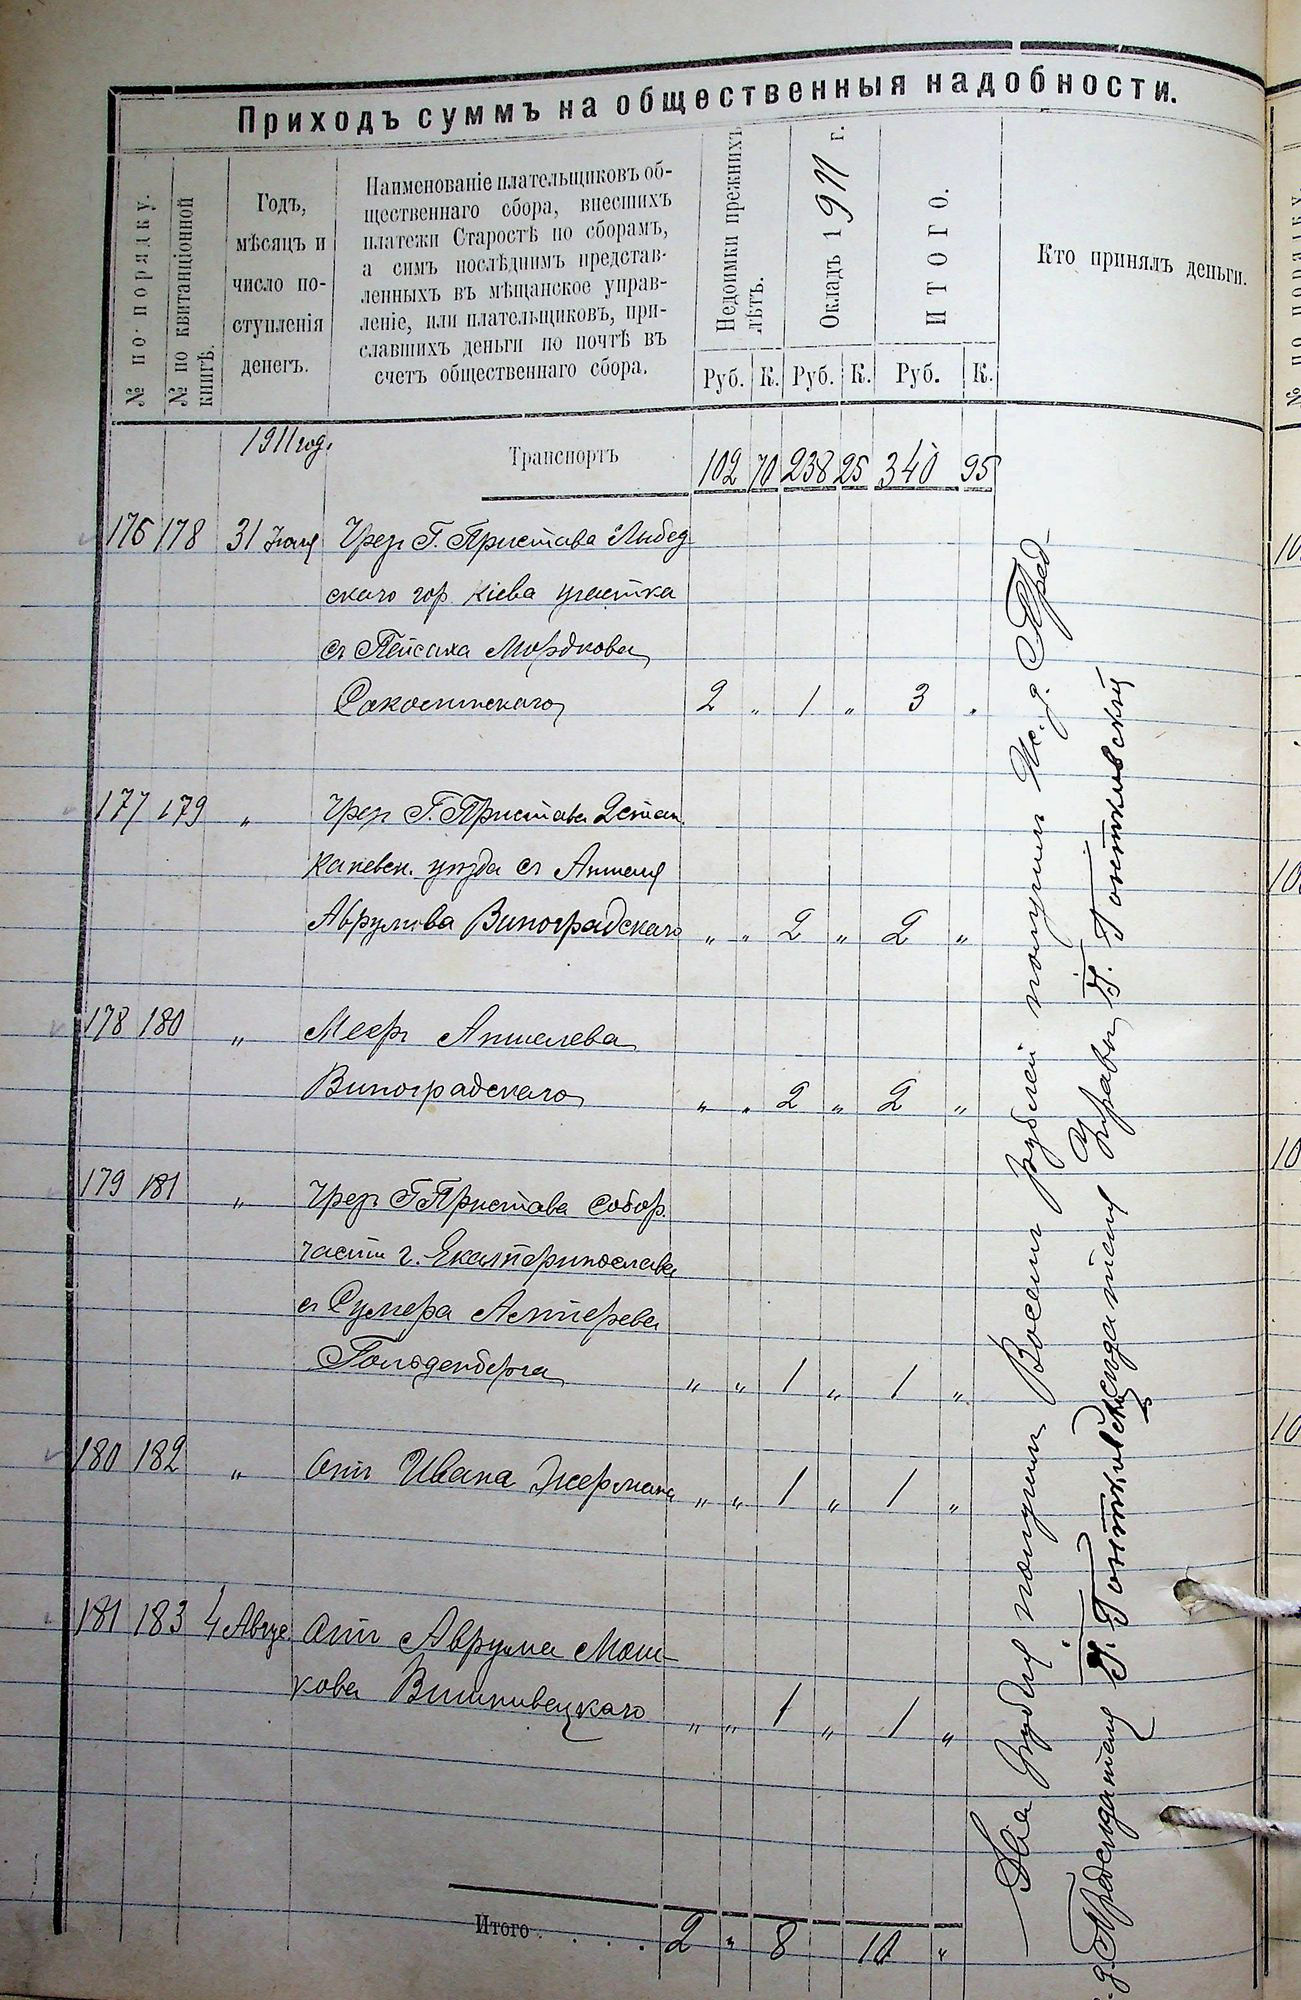 Приходъ суммъ на общественныя надобности.
№ по порядку.
№ по квитанціонной
книгѣ.
Годъ,
мѣсяцъ и
число по-
ступленія
денегъ.
Наименованіе плательщиковъ об-
щественнаго сбора, внесшихъ
платежи Старостѣ по сборамъ,
а симъ послѣднимъ представ-
ленныхъ въ мѣщанское управ-
леніе, или плательщиковъ, при-
славшихъ деньги по почтѣ въ
счетъ общественнаго сбора.
Недоимки прежнихъ
лѣтъ.
Окладъ 1911 г.
ИТОГО.
Кто принялъ деньги.
Руб. К. Руб. К. Руб. К.
1911 год. Транспортъ 102 70 238 25 340 95
176 178 31 Іюля Чрез Г. Пристава Лыбед
скаго гор. Кіева участка
съ Пейсаха Мордкова
2 „ 1 „ 3 „
177 179 „ Чрез Г. Пристава 2 стан.
Каневск. уѣзда съ Аншеля
Аврумова Виноградскаго „ „ 2 „ 2 „
178 180 „ Меер Аншелева
Виноградскаго „ „ 2 „ 2 „
179 181 „ Чрез Г Пристава Собор.
части г. Екатеринослава
съ Сумера
Гольденберга „ „ 1 „ 1 „
180 182 „ Отъ Ивана „ „ 1 „ 1 „
181 183 4 Авгус. Отъ Аврума Мош-
кова Вишнивецкаго „ „ 1 „ 1 „
Итого . . . . 2 „ 8 10 „
Восемь рублей получил Ис. д. Пред-
сѣдателя Управы Г. Гонтковскій
Два рубля получил
. д. Предсѣдателя Г. Гонтковскій
№ по порядку.